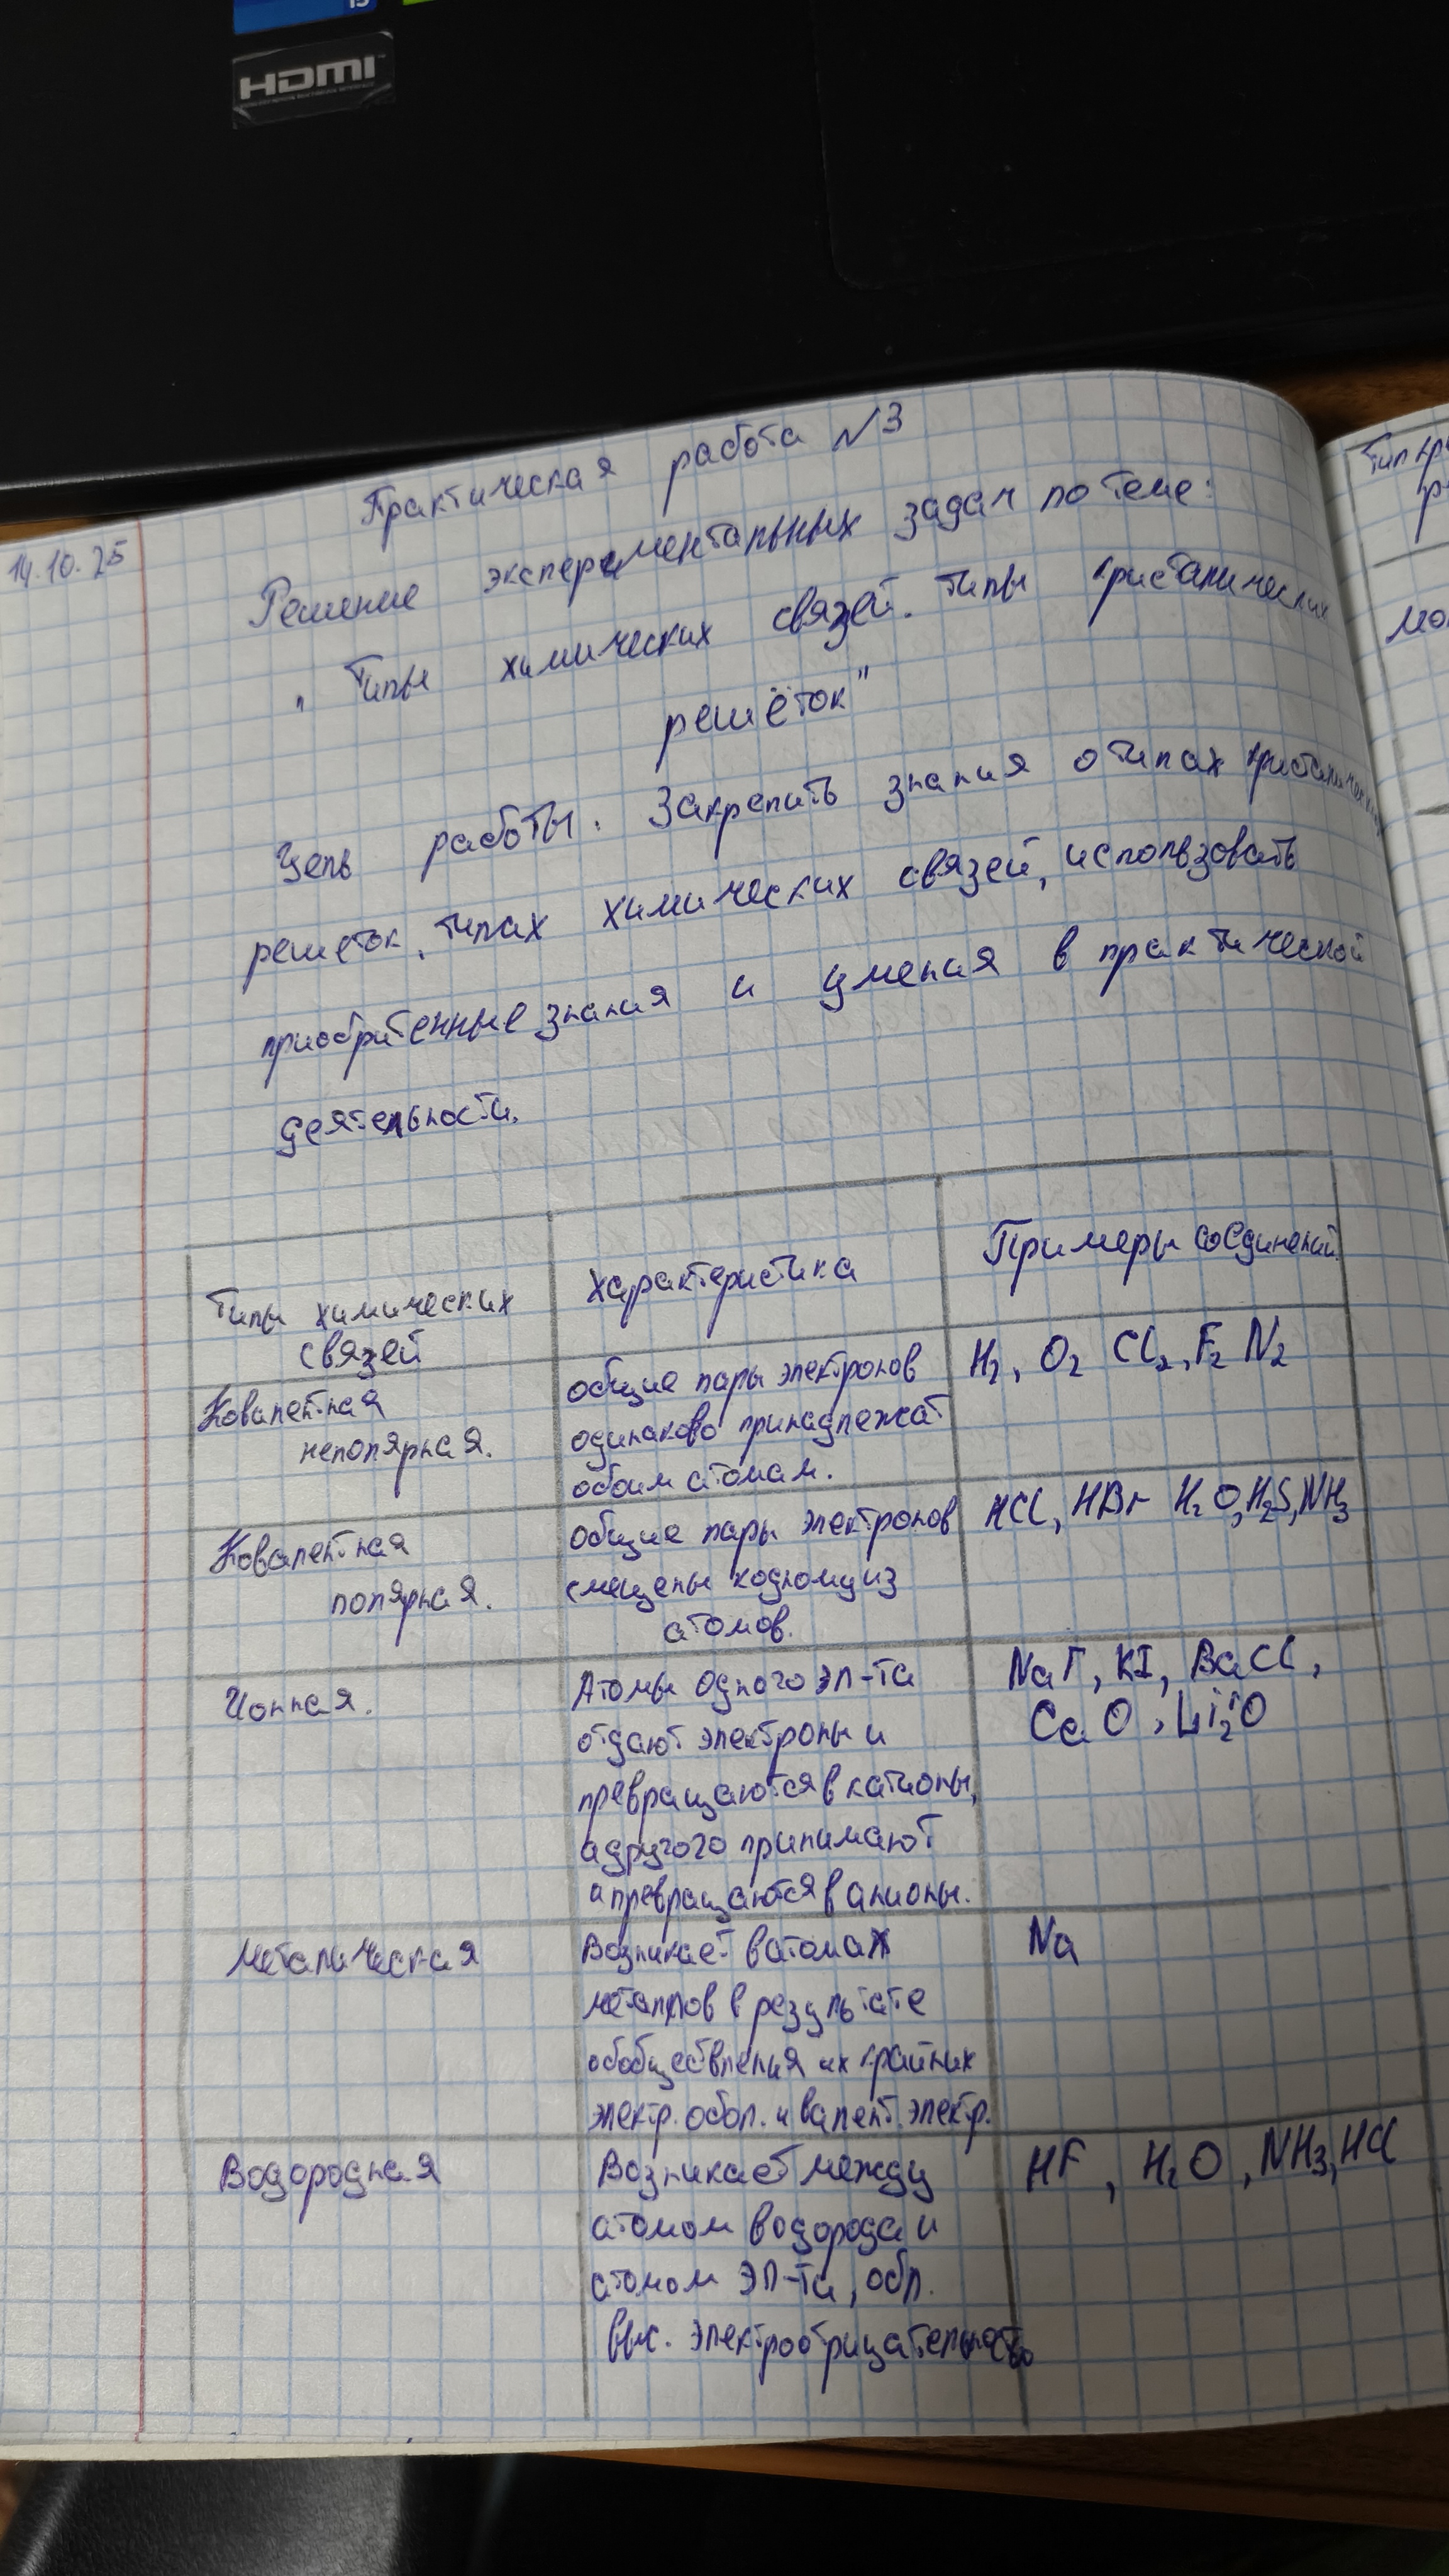 HDMI
Практическая работа №3
14.10.25
Решение эксперементальных задач по теме:
„Типы химических связей. Типы кристалических
решёток"
Цель работы: Закрепить знания о типах кристалических
решеток, типах химических связей, использовать
приобритенные знания и умения в практической
деятельности.
Типы химических
связей
Характеристика
Примеры соединений
Ковалентная
неполярная.
общие пары электронов
одинаково принадлежат
обоим атомам.
H2, O2 Cl2, F2 N2
Ковалентная
полярная.
общие пары электронов
смещены к одному из
атомов.
HCl, HBr H2O, H2S, NH3
Ионная.
Атомы одного эл-та
отдают электроны и
превращаются в катионы,
а другого принимают
и превращаются в анионы.
KI, BaCl,
CaO, Li2O
Металическая
Возникает в атомах
металлов в результате
обобществления их крайних
электр. обол. и валент. электр.
Na
Водородная
Возникает между
атомом водорода и
атомом эл-та, обл.
выс. электроотрицательность
HF, H2O, NH3, HCl